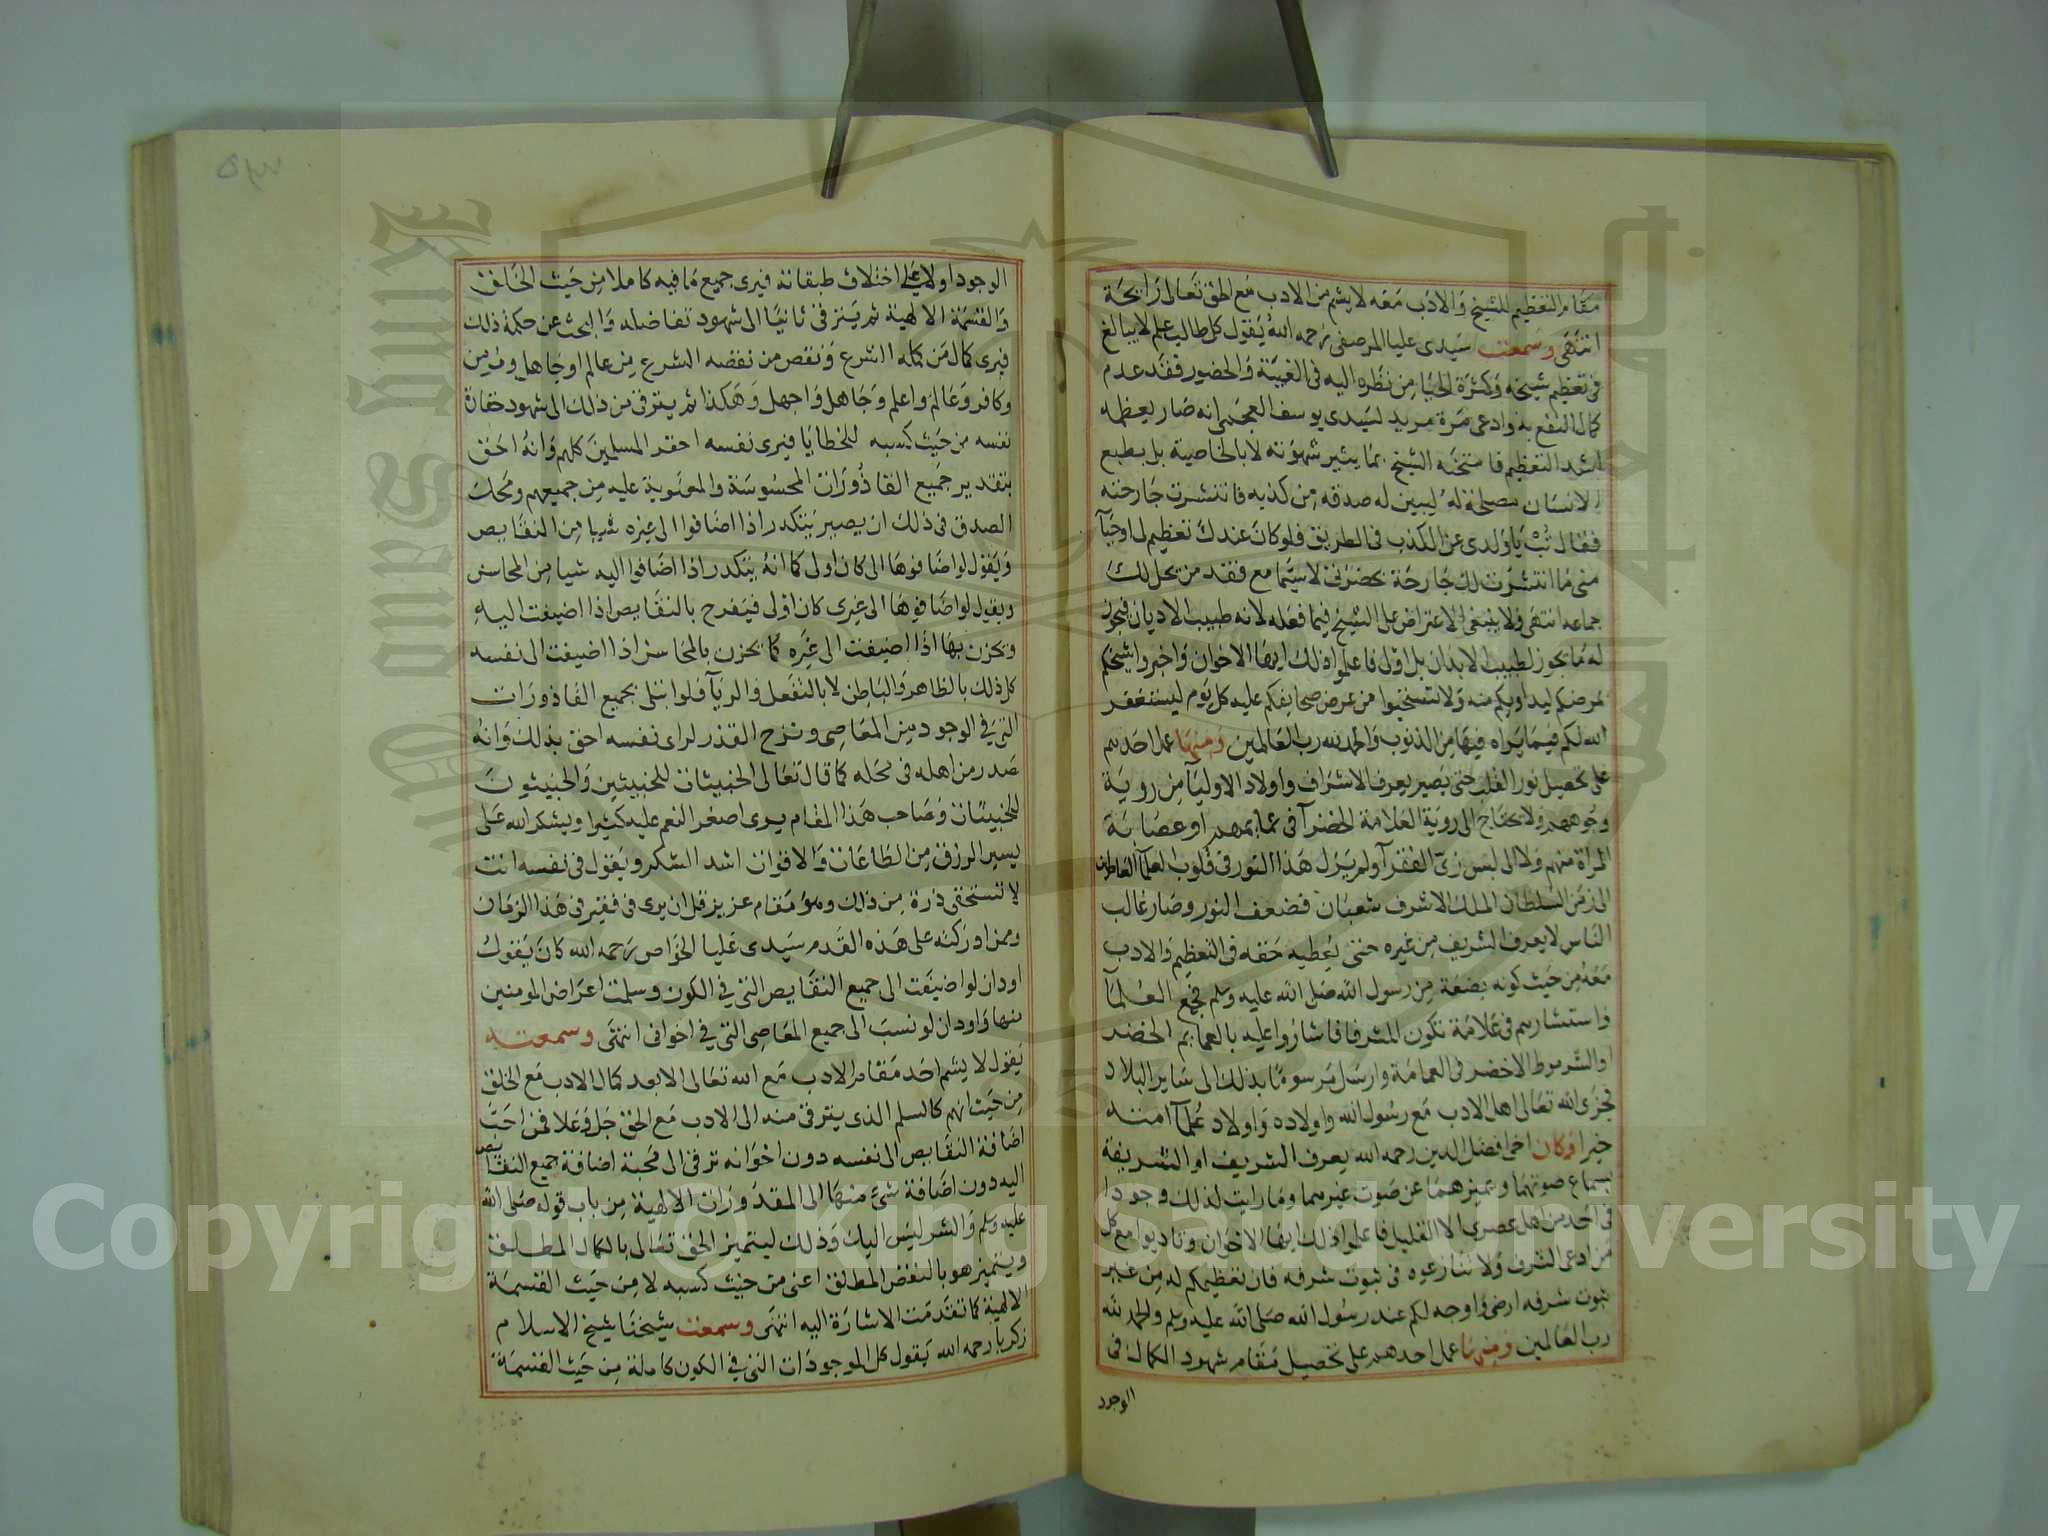 مقام التعظيم للشيخ والادب معه لا يشم من الادب مع الحق تعالى رايحة
انتهى وسمعت سيدى عليا المرصفى رحمه الله يقول كل طالب علم لا يبالغ
فى تعظيم شيخه وكثرة الحيا من نظره اليه فى الغيبة والحضور فقد عدم
كمال النفع به وادعى مرة مريد لسيدى يوسف العجمى انه صار يعظمه
اشد التعظيم فامتحنه الشيخ بما يثير شهوته لا بالخاصية بل بطبع
الانسان مصلحة له ليبين له صدقه من كذبه فانتشرت جارحته
فقال تب يا ولدى عن الكذب فى الطريق فلو كان عندك تعظيم لى او حيآ
منى ما انتشرت لك جارحة بحضرتى لا سيما مع فقد من يحل لك
جماعه انتهى ولا ينبغى الاعتراض على الشيخ فيما فعله لانه طبيب الاديان فيجوز
له ما يجوز لطبيب الابدان بل اولى فاعلموا ذلك ايها الاخوان واخبروا شيخكم
بمرضكم ليداويكم منه ولا تستحيوا من عرض صحايفكم عليه كل يوم ليستغفر
الله لكم فيما يراه فيها من الذنوب والحمد لله رب العالمين ومنها عمل احدهم
على تحصيل نور القلب حتى يصير يعرف الاشراف واولاد الاوليآ من روية
وجوههم ولا يحتاج الى روية العلامة الخضرآ فى عمايمهم او عصابة
المراة منهم ولا الى لبس زى الفقرآ ولم يزل هذا النور فى قلوب العلمآ العاملين
الى زمن السلطان الملك الاشرف شعبان فضعف النور وصار غالب
الناس لا يعرف الشريف من غيره حتى يعطيه حقه فى التعظيم والادب
معه من حيث كونه بضعة من رسول الله صلى الله عليه وسلم فجمع العلمآ
واستشارهم فى علامة تكون للشرفا فاشاروا عليه بالعمايم الخضر
او الشرموط الاخضر فى العمامة وارسل مرسوما بذلك الى ساير البلاد
فجزى الله تعالى اهل الادب مع رسول الله واولاده واولاد علمآ امته
خيرا وكان اخى افضل الدين رحمه الله يعرف الشريف او الشريفة
بسماع صوتهما ويميزهما عن صوت غيرهما وما رايت لذلك وجودا
فى احد من اهل عصرى الا القليل فاعلموا ذلك ايها الاخوان وتادبوا مع كل
من ادعى الشرف ولا تنازعوه فى ثبوت شرفه فان تعظيمكم له من غير
ثبوت شرفه ارضى واوجه لكم عند رسول الله صلى الله عليه وسلم والحمد لله
رب العالمين ومنها عمل احدهم على تحصيل مقام شهود الكمال فى
الوجود
الوجود اولا على اختلاف طبقاته فيرى جميع ما فيه كاملا من حيث الخلق
والقسمة الالهية ثم يترقى ثانيا الى شهود تفاضله والبحث عن حكمة ذلك
فيرى كمال من كمله الشرع ونقص من نقصه الشرع من عالم او جاهل ومومن
وكافر وعالم واعلم وجاهل واجهل وهكذا ثم يترقى من ذلك الى شهود حقارة
نفسه من حيث كسبه للخطايا فيرى نفسه احقر المسلمين كلهم وانه احق
بتقدير جميع القاذورات المحسوسة والمعنوية عليه من جميعهم ومحك
الصدق فى ذلك ان يصير يتكدر اذا اضافوا الى غيره شيا من النقايص
ويقول لو اضافوها الى كان اولى كما انه يتكدر اذا اضافوا اليه شيا من المحاسن
ويقول لو اضافوها الى غيرى كان اولى فيفرح بالنقايص اذا اضيفت اليه
ويحزن بها اذا اضيفت الى غيره كما يحزن بالمحاسن اذا اضيفت الى نفسه
كل ذلك بالظاهر والباطن لا بالتفعل والريآ فلو ابتلى بجميع القاذورات
التى فى الوجود من المعاصى ونزح القذر لراى نفسه احق بذلك وانه
صدر من اهله فى محله كما قال تعالى الخبيثات للخبيثين والخبيثون
للخبيثات وصاحب هذا المقام يرى اصغر النعم عليه كثيرا ويشكر الله على
يسير الرزق من الطاعات والاقوات اشد الشكر ويقول فى نفسه انت
لا تستحقى ذرة من ذلك وهو مقام عزيز قل ان يرى فى فقير فى هذا الزمان
وممن ادركته على هذه القدم سيدى عليا الخواص رحمه الله كان يقول
اود ان لو اضيفت الى جميع النقايص التى فى الكون وسلمت اعراض المومنين
منها واود ان لو نسب الى جميع المعاصى التى فى اخوانى انتهى وسمعته
يقول لا يشم احد مقام الادب مع الله تعالى الا بعد كمال الادب مع الخلق
من حيث انهم كالسلم الذى يترقى منه الى الادب مع الحق جل وعلا فمن احب
اضافة النقايص الى نفسه دون اخوانه ترقى الى محبة اضافة جميع النقايص
اليه دون اضافة شئ منها الى المقدورات الالهية من باب قوله صلى الله
عليه وسلم والشر ليس اليك وذلك ليتميز الحق تعالى بالكمال المطلق
ويتميز هو بالنقص المطلق اعنى من حيث كسبه لا من حيث القسمة
الالهية كما تقدمت الاشارة اليه انتهى وسمعت شيخنا شيخ الاسلام
زكريا رحمه الله يقول كل الموجودات التى فى الكون كاملة من حيث القسمة
Copyright © King Saud University